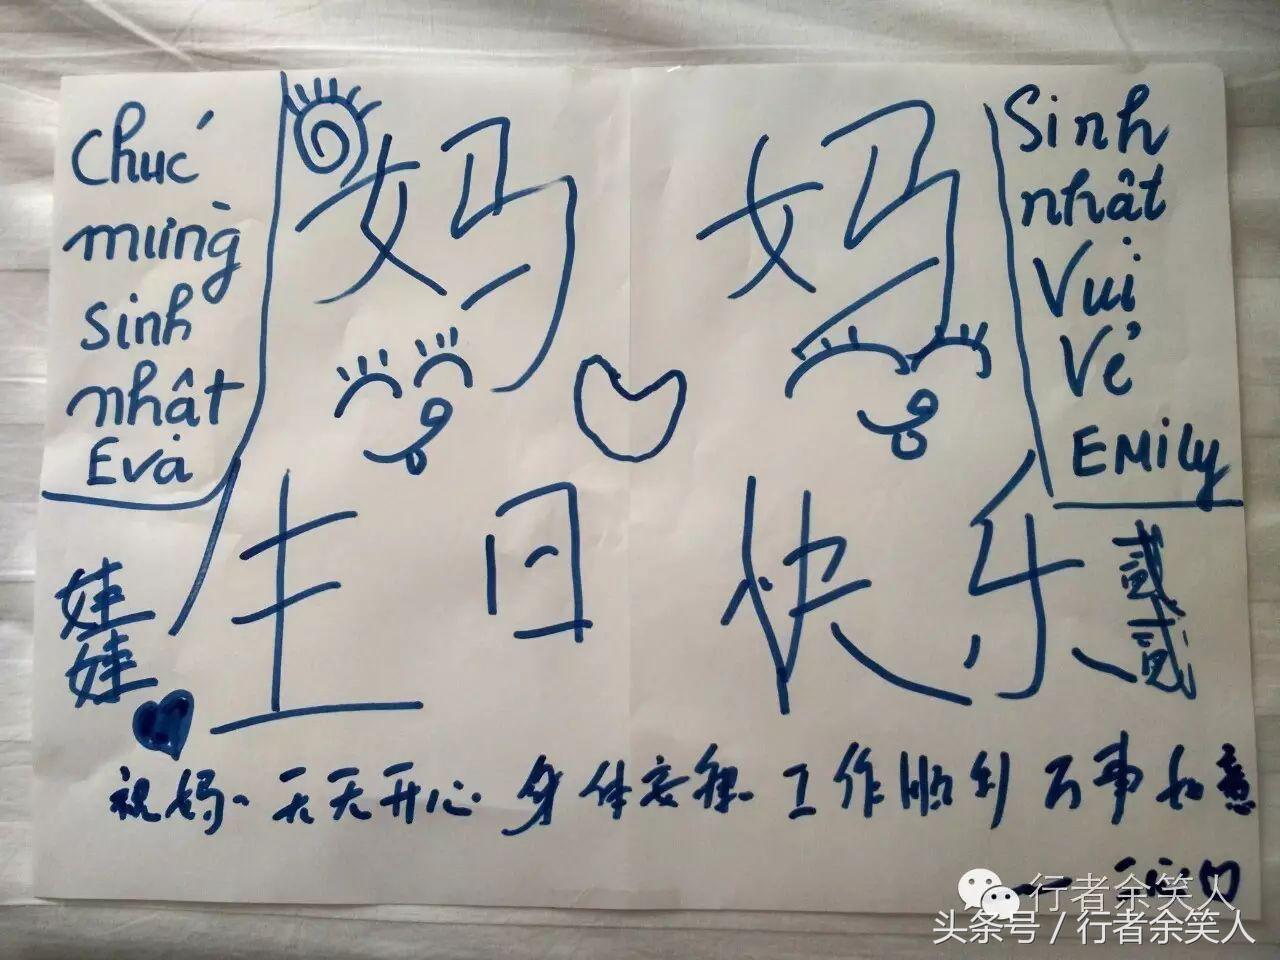 Chúc
mừng
sinh
nhật
Eva
妈 妈
生 日 快 乐
Sinh
nhật
Vui
Vẻ
EMily
娃
娃
贰
贰
祝妈妈天天开心 身体安康 工作顺利 万事如意
行者余笑人
头条号 / 行者余笑人